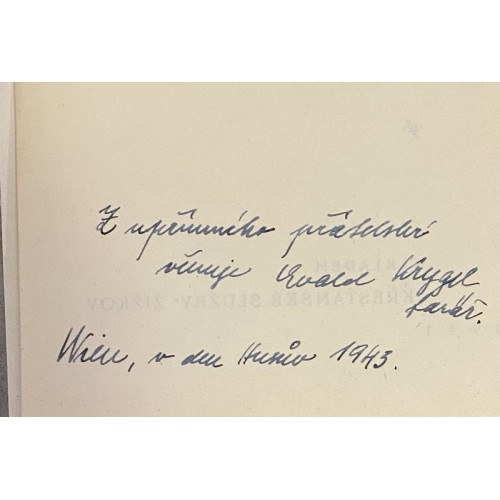 Z upřímného přátelství
věnuje Evald Krygel
farář.
Wien, v den Husův 1943.
NÁKLADEM
KŘESŤANSKÉ SLUŽBY ŽIŽKOV